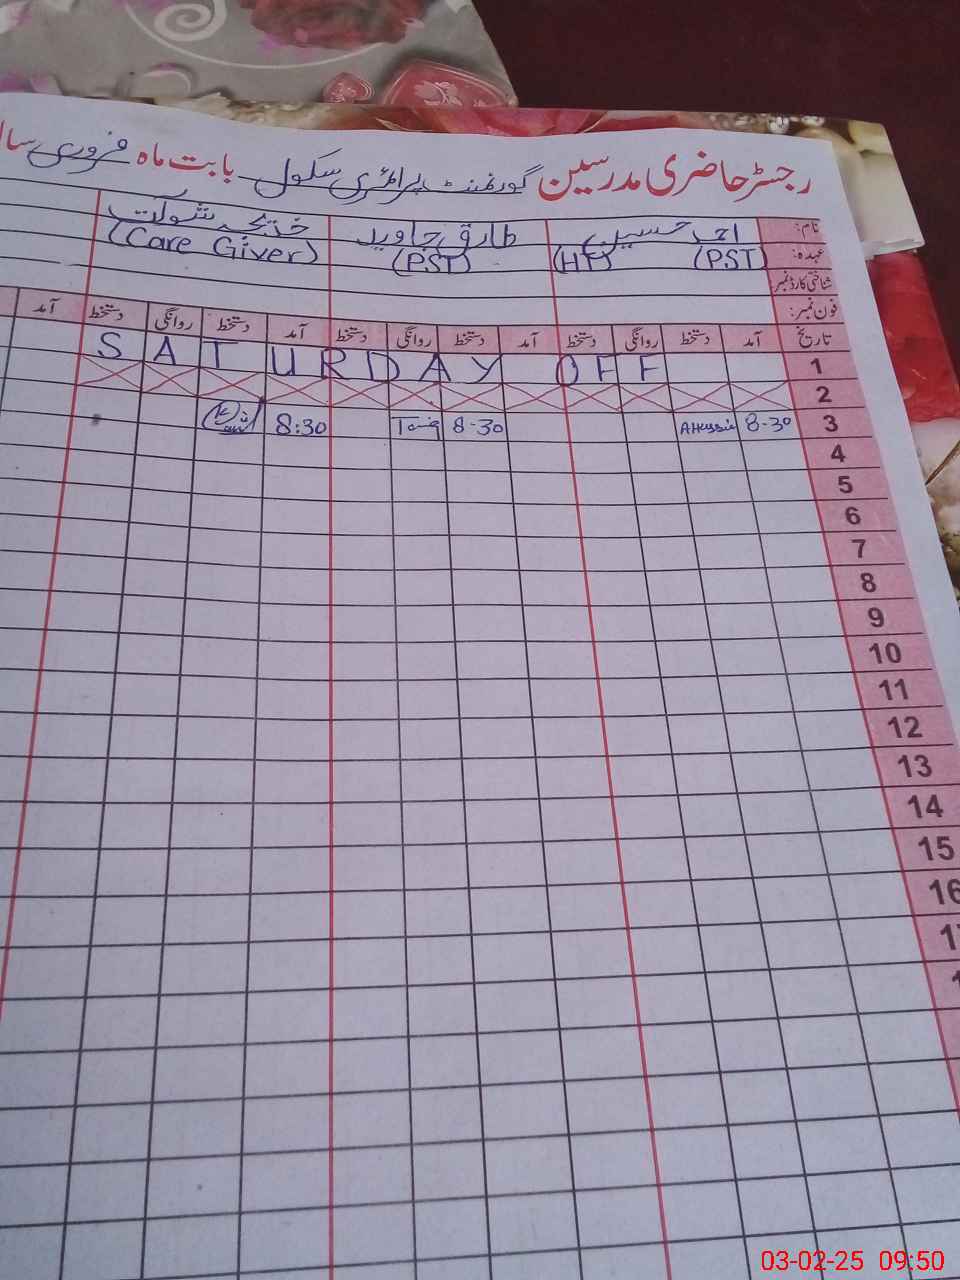 رجسٹر حاضری مدرسین گورنمنٹ پرائمری سکول بابت ماہ فروری سال
نام: احمد حسین طارق جاوید خدیجہ شوکت
عہدہ: (PST) (HT) (PST) (Care Giver)
شناختی کارڈ نمبر:
فون نمبر:
تاریخ آمد دستخط روانگی دستخط آمد دستخط روانگی دستخط آمد دستخط روانگی دستخط آمد
1 SATURDAY OFF
2
3 8-30 AHussain 8-30 Tariq 8:30
4
5
6
7
8
9
10
11
12
13
14
15
16
03-02-25 09:50